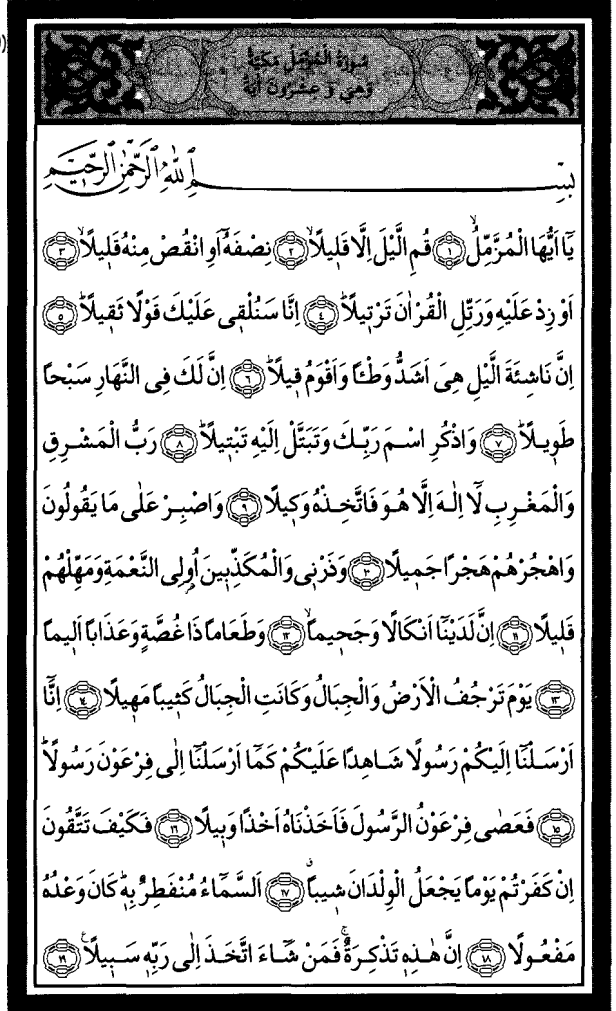 سُورَةُ الْمُزَّمِّلِ مَكِّيَّةٌ
وَهِيَ عِشْرُونَ اٰيَةً
بِسْمِ اللّٰهِ الرَّحْمٰنِ الرَّحِيمِ
يَٓا اَيُّهَا الْمُزَّمِّلُۙ ﴿١﴾ قُمِ الَّيْلَ اِلَّا قَلٖيلاًۙ ﴿٢﴾ نِصْفَهُٓ اَوِ انْقُصْ مِنْهُ قَلٖيلاًۙ ﴿٣﴾
اَوْ زِدْ عَلَيْهِ وَرَتِّلِ الْقُرْاٰنَ تَرْتٖيلاًؕ ﴿٤﴾ اِنَّا سَنُلْقٖي عَلَيْكَ قَوْلًا ثَقٖيلاًؕ ﴿٥﴾
اِنَّ نَاشِئَةَ الَّيْلِ هِيَ اَشَدُّ وَطْـٔاً وَاَقْوَمُ قٖيلاًؕ ﴿٦﴾ اِنَّ لَكَ فِي النَّهَارِ سَبْحاً
طَوٖيلاًؕ ﴿٧﴾ وَاذْكُرِ اسْمَ رَبِّكَ وَتَبَتَّلْ اِلَيْهِ تَبْتٖيلاًؕ ﴿٨﴾ رَبُّ الْمَشْرِقِ
وَالْمَغْرِبِ لَٓا اِلٰهَ اِلَّا هُوَ فَاتَّخِذْهُ وَكٖيلًا ﴿٩﴾ وَاصْبِرْ عَلٰى مَا يَقُولُونَ
وَاهْجُرْهُمْ هَجْرًا جَمٖيلًا ﴿١٠﴾ وَذَرْنٖي وَالْمُكَذِّبٖينَ اُو۬لِي النَّعْمَةِ وَمَهِّلْهُمْ
قَلٖيلًا ﴿١١﴾ اِنَّ لَدَيْنَٓا اَنْكَالًا وَجَحٖيماًۙ ﴿١٢﴾ وَطَعَاماً ذَا غُصَّةٍ وَعَذَاباً اَلٖيماً
﴿١٣﴾ يَوْمَ تَرْجُفُ الْاَرْضُ وَالْجِبَالُ وَكَانَتِ الْجِبَالُ كَثٖيباً مَهٖيلًا ﴿١٤﴾ اِنَّٓا
اَرْسَلْنَٓا اِلَيْكُمْ رَسُولًا شَاهِدًا عَلَيْكُمْ كَمَٓا اَرْسَلْنَٓا اِلٰى فِرْعَوْنَ رَسُولًاؕ
﴿١٥﴾ فَعَصٰى فِرْعَوْنُ الرَّسُولَ فَاَخَذْنَاهُ اَخْذًا وَبٖيلًا ﴿١٦﴾ فَكَيْفَ تَتَّقُونَ
اِنْ كَفَرْتُمْ يَوْماً يَجْعَلُ الْوِلْدَانَ شٖيباًۗ ﴿١٧﴾ اَلسَّمَٓاءُ مُنْفَطِرٌ بِهٖؕ كَانَ وَعْدُهُ
مَفْعُولًا ﴿١٨﴾ اِنَّ هٰذِهٖ تَذْكِرَةٌۚ فَمَنْ شَٓاءَ اتَّخَذَ اِلٰى رَبِّهٖ سَبٖيلًاؑ ﴿١٩﴾